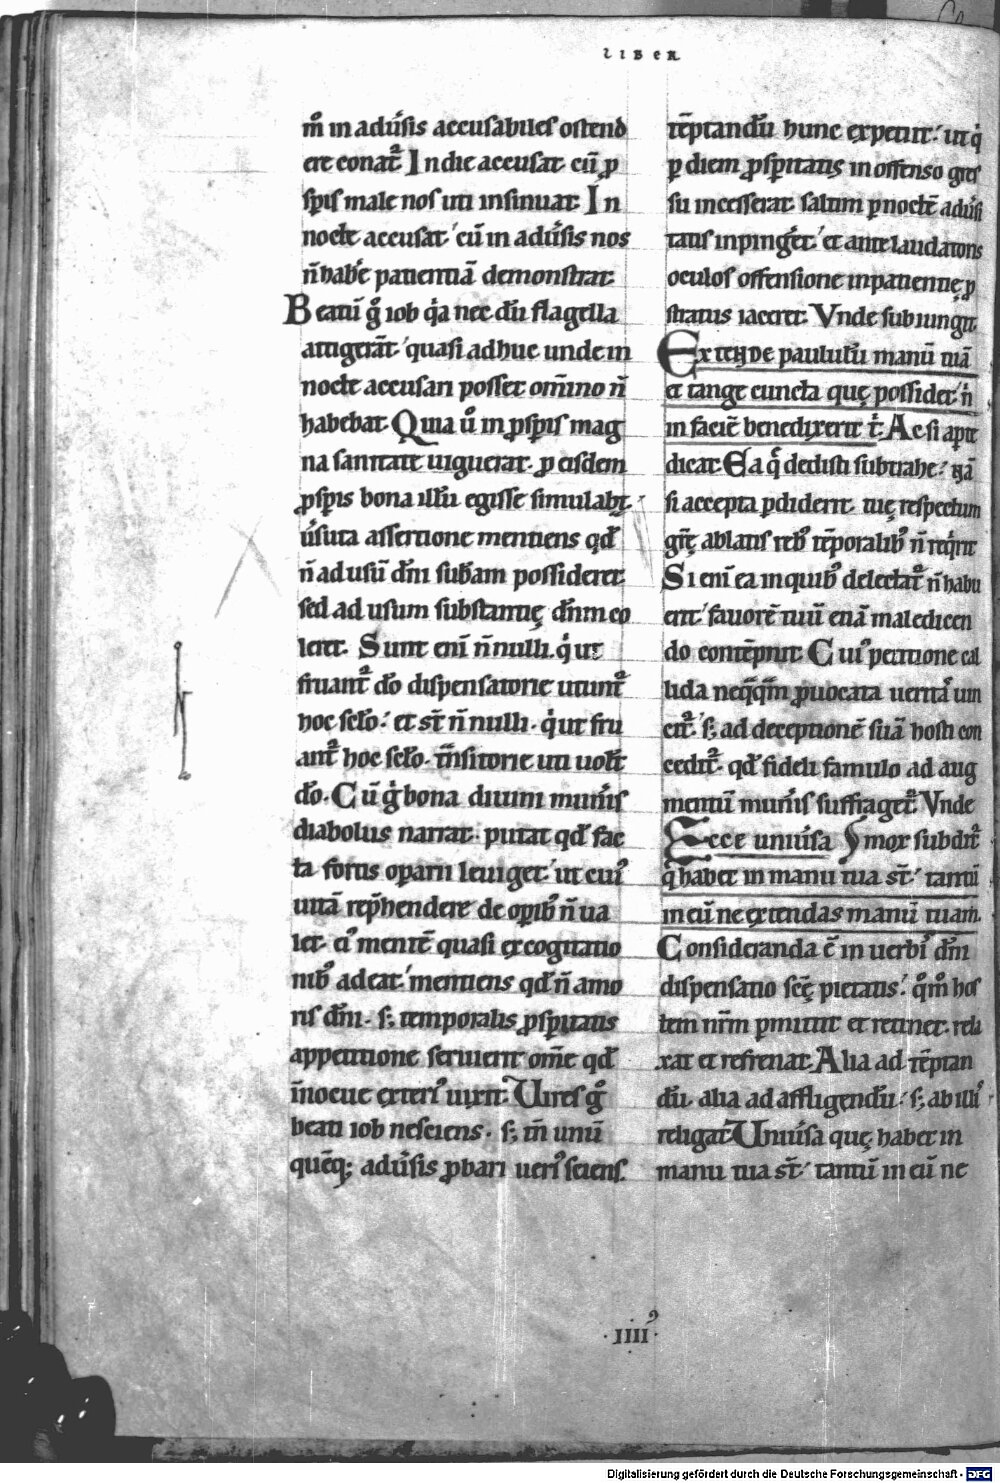 LIBER
m̊ in adúsis accusabiles ostend
ere conat᷑. In die accusat cū ꝓ
sp̱is male nos uti insinuat. In
nocte accusat᷑ cū in adúsis nos
n̄ habe᷑ patientiā demonstrat.
Beatū g̊ iob qͥa nec dū flagella
attigerāt᷑ quasi adhuc unde in
nocte accusari posset om̄ino n̄
habebat. Quia ů in ꝓsp̱is mag
na sanctitate uiguerat. ꝓ eisdem
ꝓsp̱is bona illū egisse simulab̄t.
úsuta assertione mentiens qd̄
n̄ ad usū dn̄i subam possideret.
sed ad usum substantię dn̄m co
leret. Sunt eni n̄nulli. qͥ ut
fruant᷑ dō dispensatorie utunt᷑
hoc sc̄lo: et st̄ n̄nulli. qͥ ut fru
ant᷑ hoc sc̄lo. t̄nsitorie uti uolt̄
dō. Cū g̊ bona diuini muńis
diabolus narrat. putat qd̄ fac
ta fortis oparii leuiget᷑ ut cuiꝰ
uitā rep̄hendere de opibꝰ n̄ ua
let. eiꝰ mentē quasi ex cogitatio
nibꝰ adeat᷑ mentiens qd̄ n̄ amo
ris dn̄i. s; temporalis ꝓsp̱itatis
appetitione seruierit om̄e qd̄
īnocue exteriꝰ uixit. Uires g̊
beati iob nesciens. s; tn̄ unū
quēq; adúsis ꝓbari ueriꝰ sciens.
tēptandū hunc expetiit: ut qͥ
ꝑ diem ꝓsp̱itatis in offenso gres
su incesserat. saltim ꝑ nocte᷑ adúsi
tatis inpinget᷑. et ante laudatoris
oculos offensione inpatientię ꝓ
stratus iaceret. Vnde subiungit.
Extende paululū manū tuā
et tange cuncta quę possidet᷑ n̄
in faciē benedixerit tͥ. Ac si apte
dicat. Ea qͣ dedisti subtrahe: nā
si accepta ꝑdiderit. tuę respectum
grę̄ ablatis rebꝰ tēporalibꝰ n̄ reqͥrit
Si eni ea in quibꝰ delectat᷑ n̄ habu
erit᷑ fauorē tuū etiā maledicen
do contēpnit. Cuiꝰ petitione cal
lida neq̄q̄m ꝓuocata ueritaꝰ uin
cit᷑. s; ad deceptionē suā hosti con
cedit᷑. qd̄ fideli famulo ad aug
mentū muńis suffraget᷑. Vnde
Ecce uniúsa & mox subdit᷑
q̄ habet in manu tua st̄. tantū
in eū ne extendas manū tuam.
Consideranda ē in uerbiꝰ dn̄i
dispensatio scę̄ pietatis: qͦm̊ hos
tem nr̄m ꝑmittit et retinet. rela
xat et refrenat. Alia ad tēptan
dū. alia ad affligendū. s; ab illiꝰ
religat. Uniúsa quę habet in
manu tua st̄. tantū in eū ne
·IIII·ꝰ
Digitalisierung gefördert durch die Deutsche Forschungsgemeinschaft - DFG